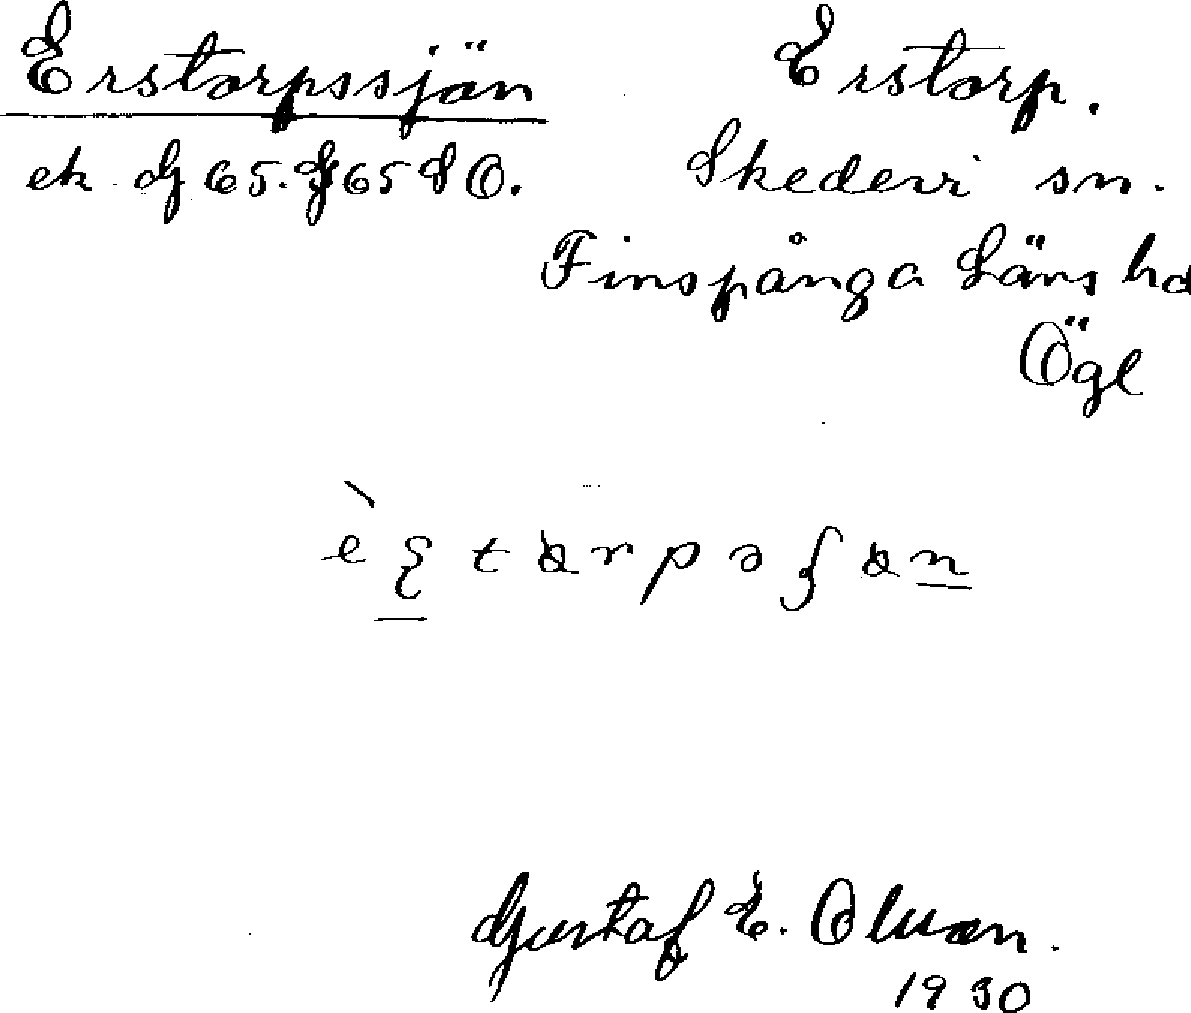 Erstorpssjön
Erstorp.
ek G 65. 65 S O.
Skedevi sn.
Finspånga Läns hd
Ögl
Gustaf E. Olsson.
1930